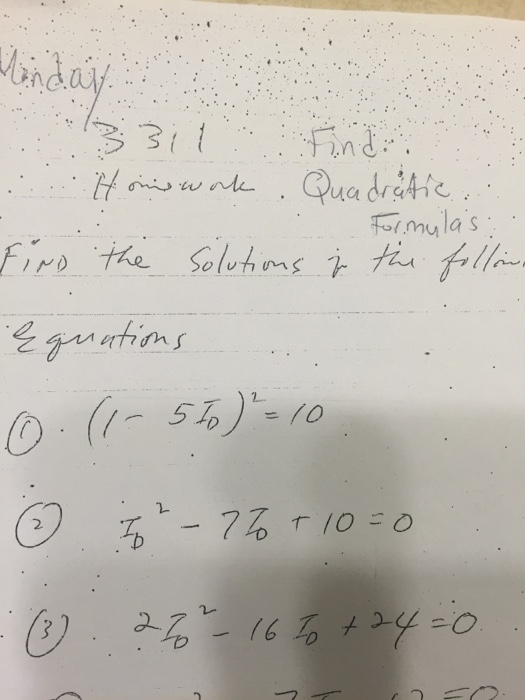 Monday
3311 Find
Homework Quadratic
Formulas
Find the Solutions of the
Equations
① (1 - 5I_D)² = 10
② I_D² - 7I_D + 10 = 0
③ 2I_D² - 16 I_D + 24 = 0